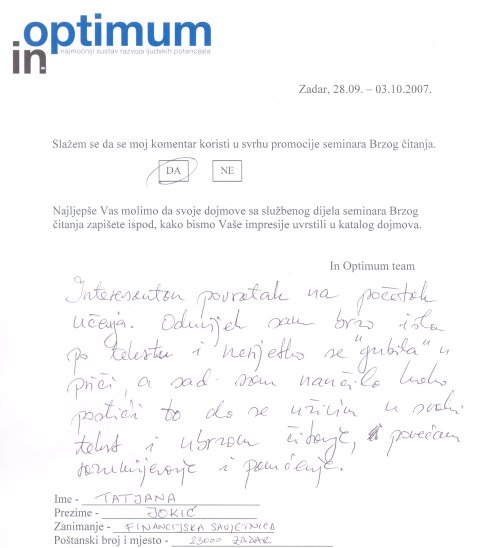 in optimum
najmoćniji sustav razvoja ljudskih potencijala
Zadar, 28.09. – 03.10.2007.
Slažem se da se moj komentar koristi u svrhu promocije seminara Brzog čitanja.
DA NE
Najljepše Vas molimo da svoje dojmove sa službenog dijela seminara Brzog
čitanja zapišete ispod, kako bismo Vaše impresije uvrstili u katalog dojmova.
In Optimum team
Interesantan povratak na početak
učenja. Oduvijek sam brzo išla
po tekstu i nerijetko se "gubila" u
priči, a sad sam naučila kako
postići to da se uživim u svaki
tekst i ubrzam čitanje, povećam
razumijevanje i pamćenje.
Ime - TATJANA
Prezime - JOKIĆ
Zanimanje - FINANCIJSKA SAVJETNICA
Poštanski broj i mjesto - 23000 ZADAR